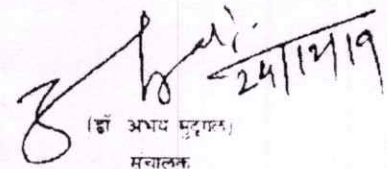 24/12/19
(डॉ अभय मुद्गल)
संचालक